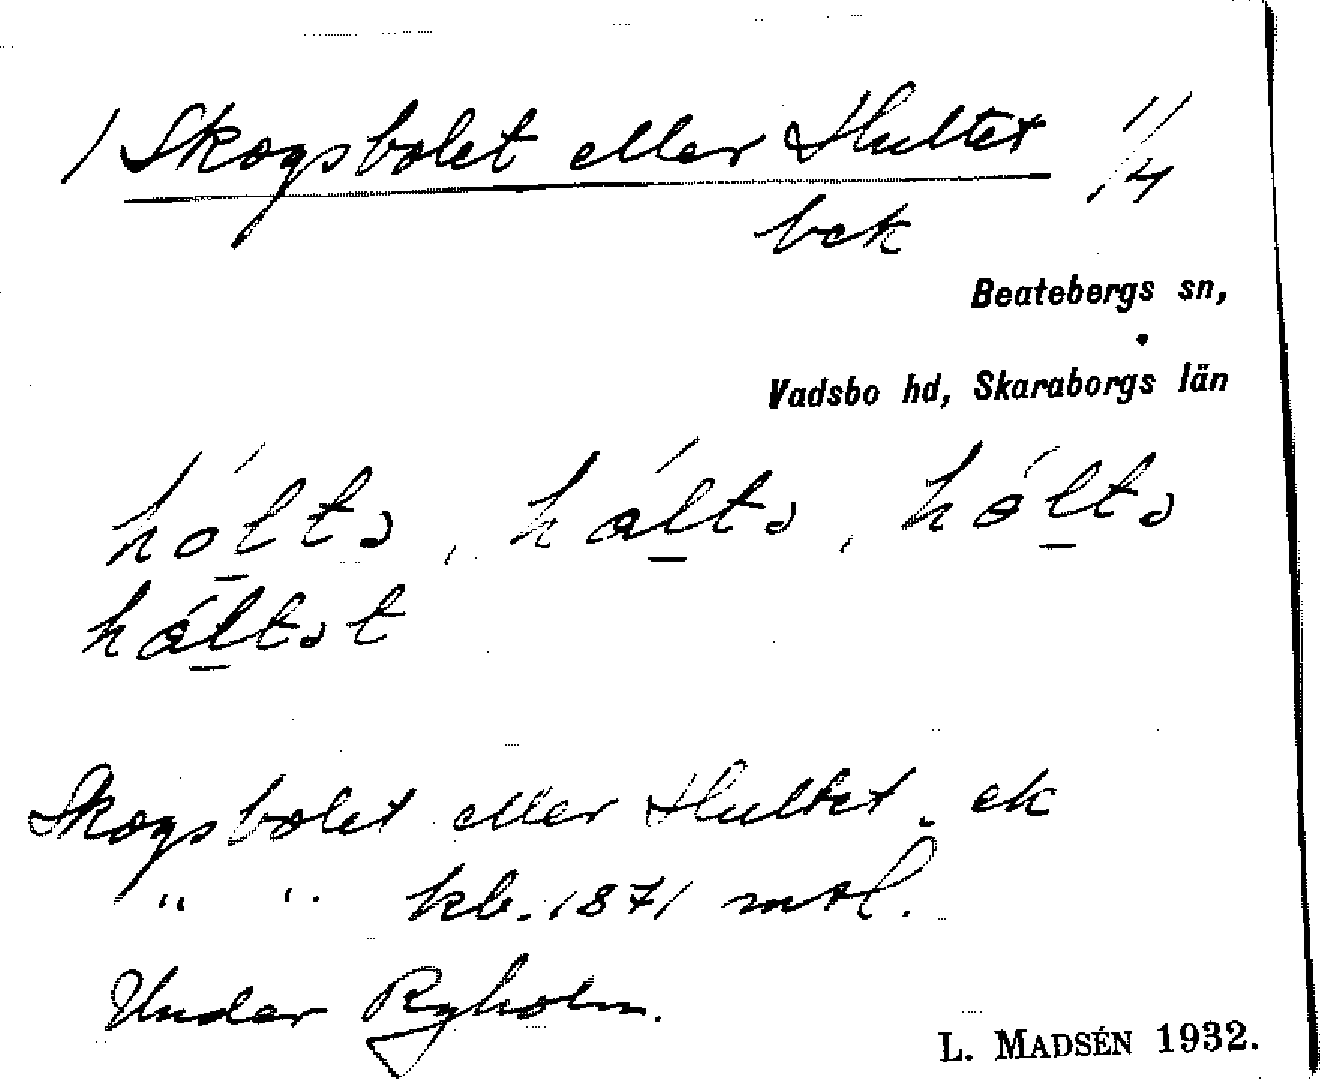 / Skogsbolet eller Hultet 1/4
bck
Beatebergs sn,
Vadsbo hd, Skaraborgs län
hólltə, háltə, hóltə
háltət
Skogsbolet eller Hultet. ek
" " kb. 1871 mtl.
Under Ryholm.
L. MADSÉN 1932.